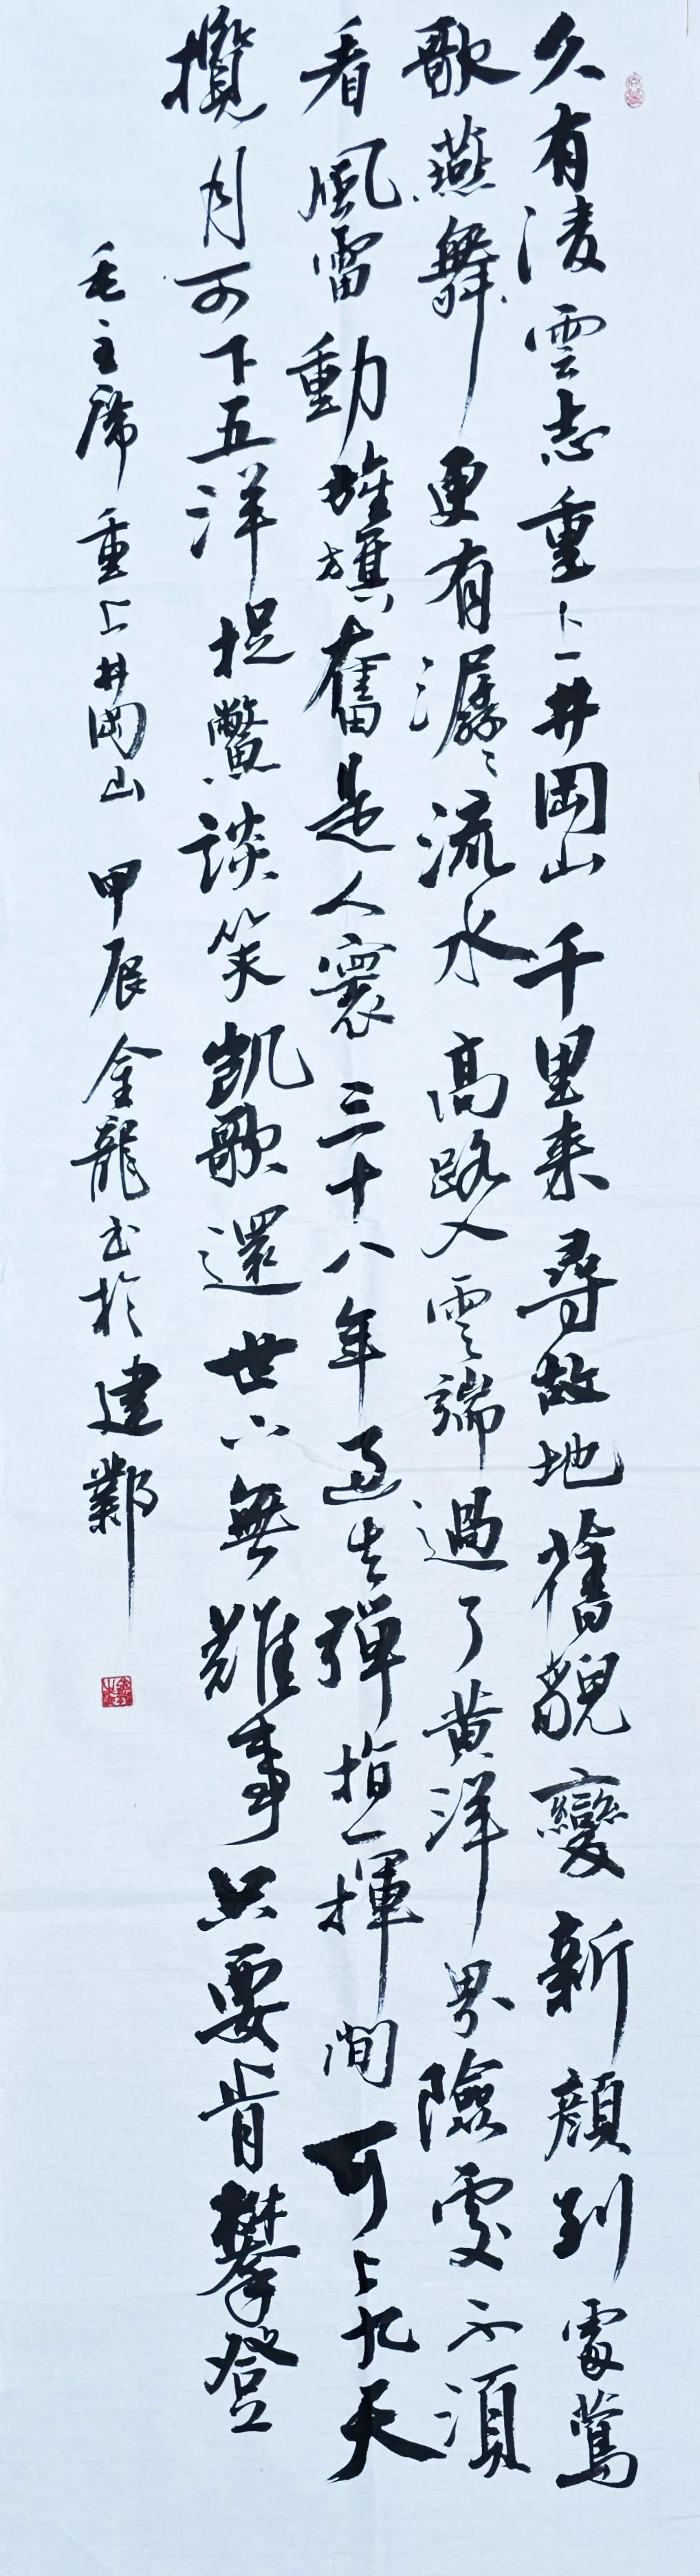 久有凌雲志重上井岡山千里来尋故地舊貌變新顔到處鶯
歌燕舞更有潺々流水高路入雲端過了黄洋界險處不須
看風雷動旌旗奮是人寰三十八年過去彈指一揮間可上九天
攬月可下五洋捉鱉談笑凱歌還世上無難事只要肯攀登
毛主席重上井岡山 甲辰金龍书於建鄴